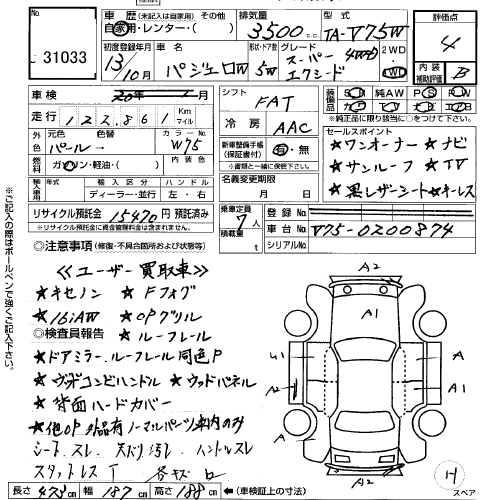 No
31033
車歴 (未記入は自家用) その他
自家用・レンター・( )
排気量
3500 c.c.
型式
TA-V75W
評価点
4
初度登録年月
13/10月
車名
パジェロW
形状・ドア数
5W
グレード
スーパーエクシード
4WD
2WD
4WD
内装
補助評価
B
車検
20年 1月
走行
122,861 Km
マイル
シフト
FAT
冷房
AAC
装備品
純AW
※純正品に限り該当に○をつけて下さい。
外色
元色
パール→
色替
カラーNo.
W75
内装色
燃料
ガソリン・軽油・( )
新車整備手帳
(保証書付)
有・無
※書類と一緒に保管して下さい。
輸入車用
年式
輸入区分
ディーラー・並行
ハンドル
左・右
名義変更期限
月 日
セールスポイント
★ワンオーナー★ナビ
★サンルーフ★TV
★黒レザーシート★キーレス
リサイクル預託金 15470円 預託済み
※リサイクル預託金に資金管理料金は含まれません。
乗車定員
7人
積載量
t
登録No.
車台No.
V75-0200874
シリアルNo.
◎注意事項 (修復・不具合箇所および状態等)
≪ユーザー買取車≫
★キセノン ★Fフォグ
★16iAW ★OPグリル
◎検査員報告 ★ルーフレール
★ドアミラー、ルーフレール同色P
★ウッドコンビハンドル ★ウッドパネル
★背面ハードカバー
★他OP、外品有 ノーマルパーツ車内のみ
シートスレ 天ハリ汚レ ハンドルスレ
スタットレス T
※ご記入の際はボールペンで強くご記入下さい。
A2
A1
A
A1
A2
A
A1
A
A2
スペア
長さ 473 cm 幅 187 cm 高さ 188 cm ←(車検証上の寸法)